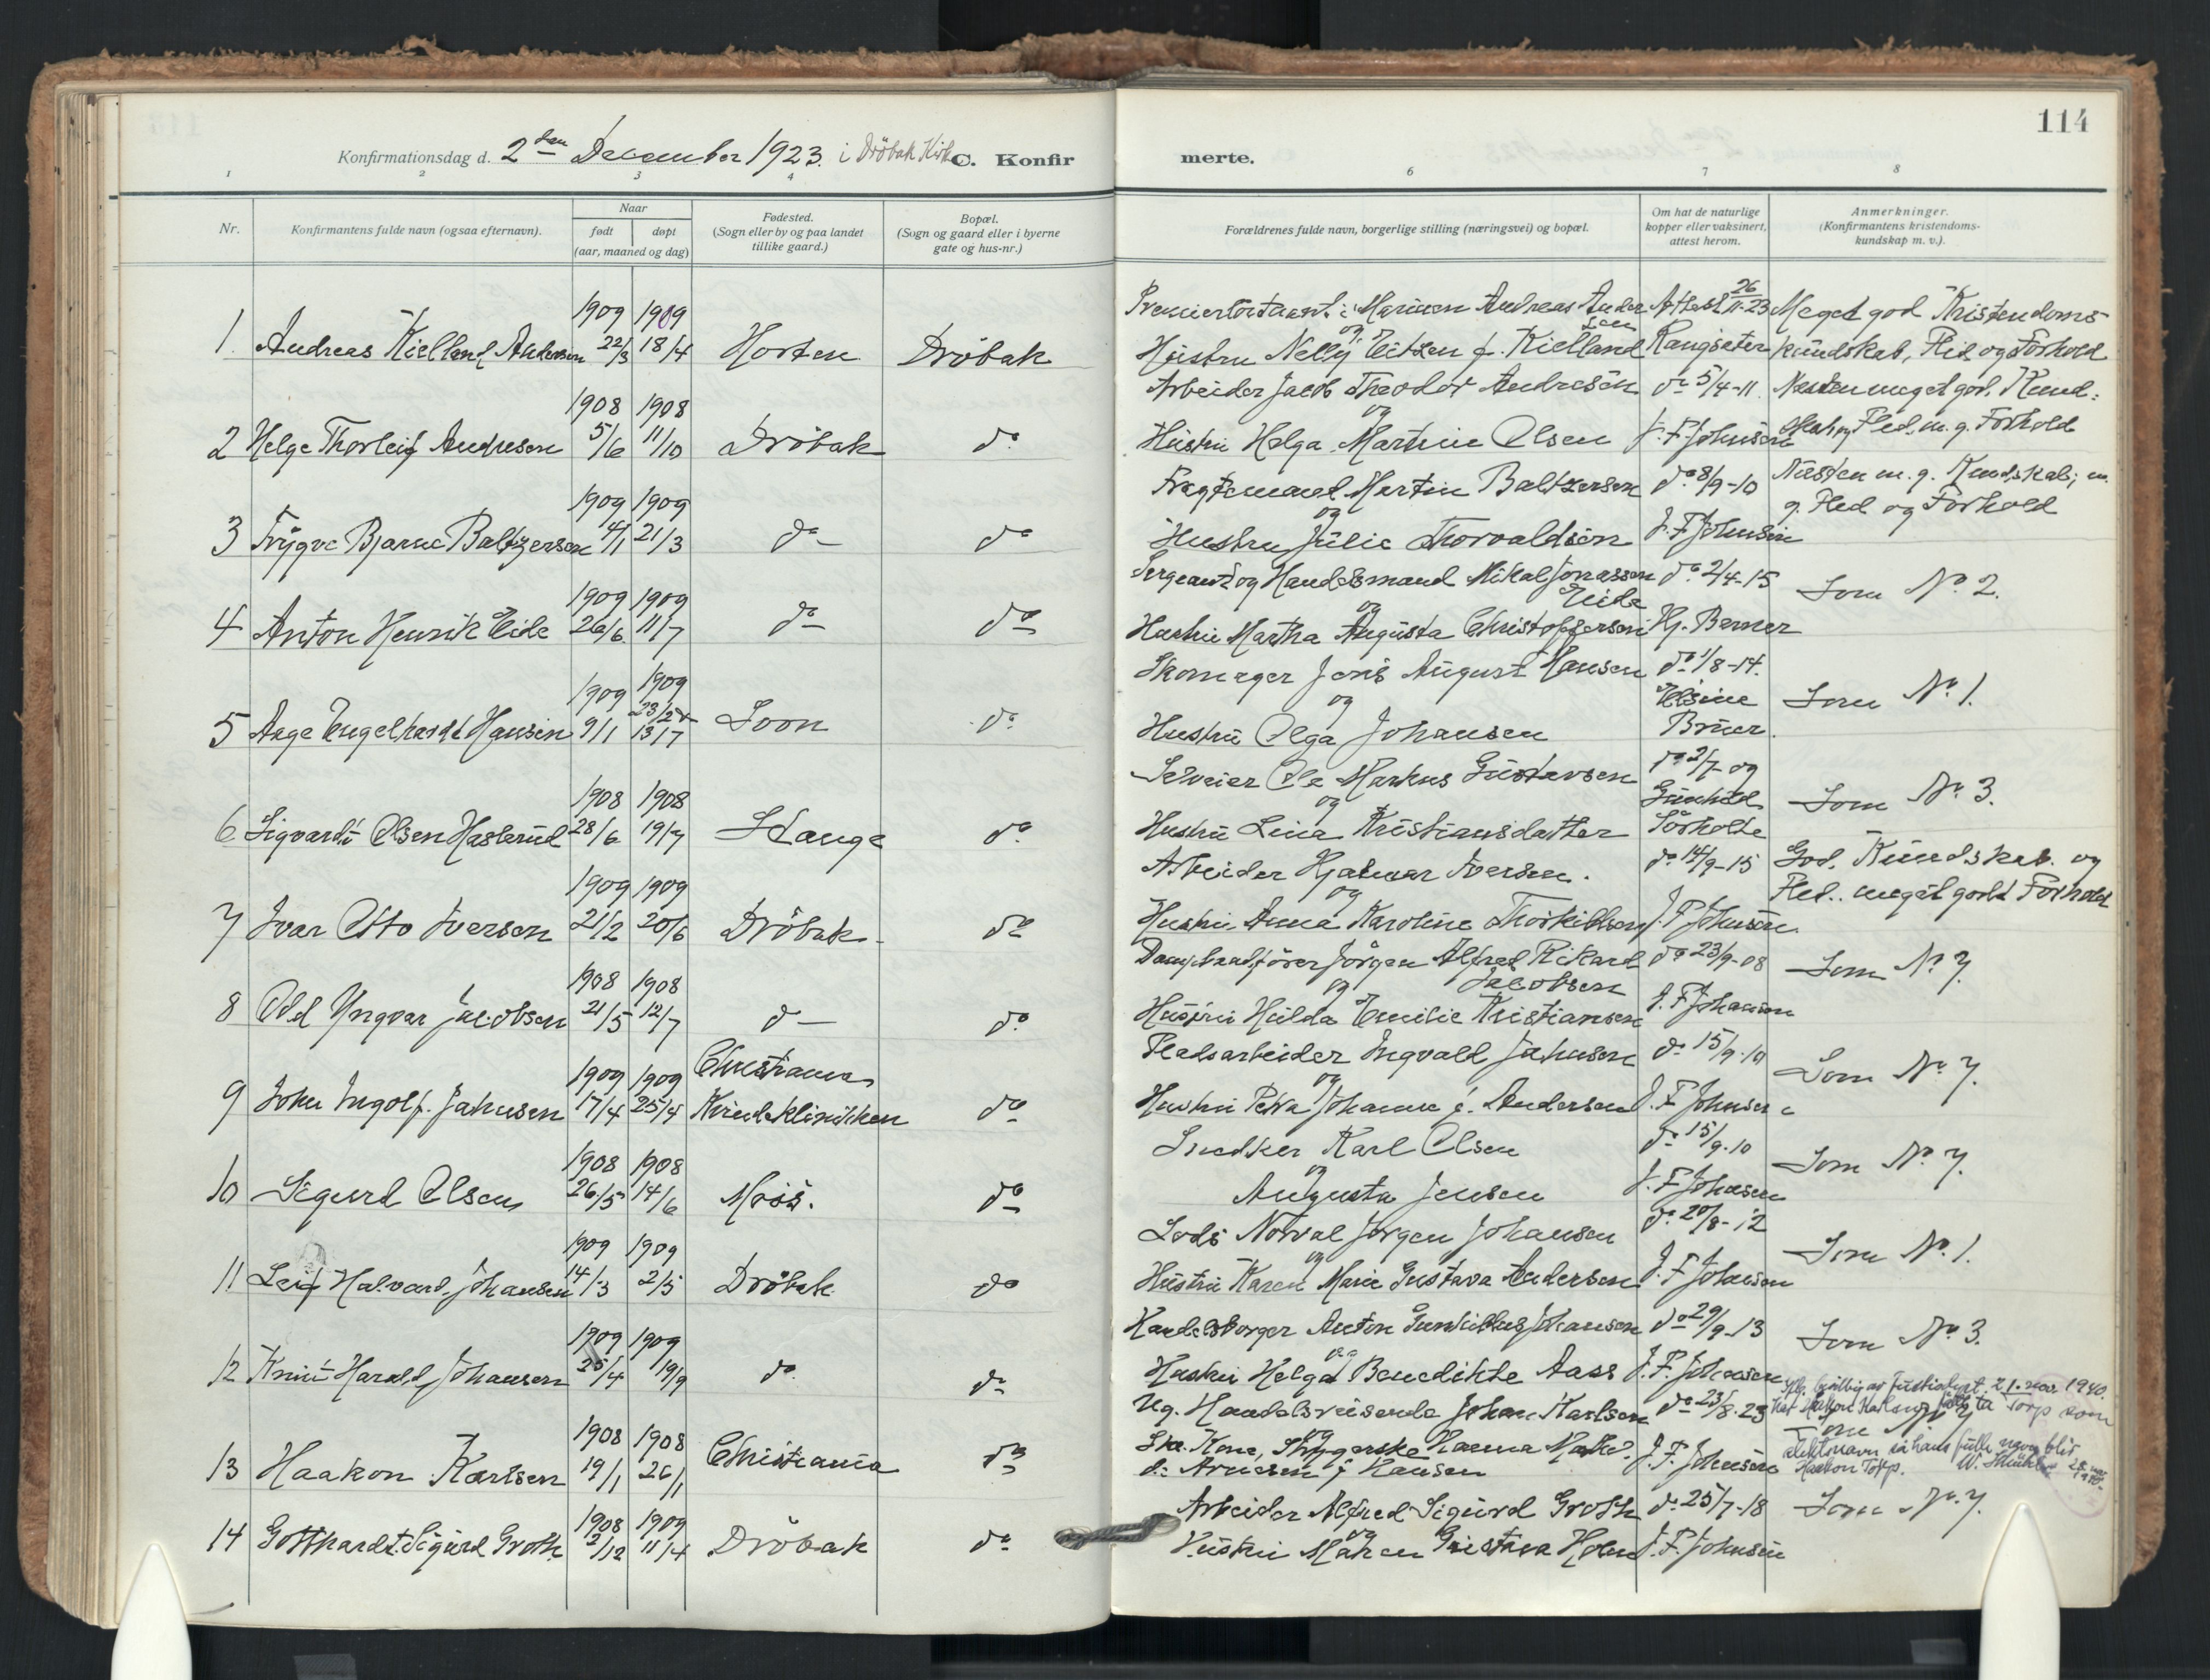 114
Konfirmationsdag d. 2den December 1923. i Dröbak Kirke C. Konfirmerte.
1 2 3 4 6 7 8
Nr.
Konfirmantens fulde navn (ogsaa efternavn).
Naar
født
døpt
(aar, maaned og dag)
Fødested.
(Sogn eller by og paa landet
tillike gaard.)
Bopæl.
(Sogn og gaard eller i byerne
gate og hus-nr.)
Forældrenes fulde navn, borgerlige stilling (næringsvei) og bopæl.
Om hat de naturlige
kopper eller vaksinert,
attest herom.
Anmerkninger.
(Konfirmantens kristendoms-
kundskap m. v.).
1909 1909 Premierløitnant i Marinen Andreas Ander Attest 26/11-23 Meget god Kristendoms-
1. Andreas Kielland Andersen 22/3 18/4 Horten Dröbak
sen
og
Hustru Nelly Eitzen f. Kielland kundskab, Flid og Forhold
1908 1908 Arbeider Jacob Theodor Andresen do 5/4-11 Næsten meget god Kund-
2 Helge Thorleif Andresen 5/6 11/10 Dröbak do
og
Hustru Helga Martine Olsen J. F. Johnsen Flid, m. g. Forhold
1909 1909 Fragtemand Martin Baltzersen do 8/9-10 Næsten m. g. Kundskab; m.
3 Trygve Bjarne Baltzersen 4/1 21/3 do do
og
Hustru Julie Thorvaldsen J. F. Johnsen g. Flid og Forhold
1909 1909 Sergeant og Handelsmand Mikal Jonassen do 2/4-15 Som No 2.
Eide
4 Anton Henrik Eide 26/6 11/7 do do
og
Hustru Martha Augusta Christoffersen Hj. Berner
1909 1909 Skomager Jens August Hansen do 1/8-14. Som No 1.
23/5
5 Aage Engelhardt Hansen 9/1 13/7 Soon do
og
Hustru Olga Johansen Elsine Bruer.
1908 1908 Selveier Ole Markus Gustavsen do 2/7- og Som No 3.
6 Sigvard Olsen Haslerud 28/6 19/9 Stange do
og
Hustru Lina Kristiansdatter Gunhild Sørholte
1909 1909 Arbeider Hjalmar Iversen. do 14/9-15 God Kundskab og
7 Ivar Otto Iversen 21/2 20/6 Dröbak do
og
Hustru Anna Karoline Thorkildsen J. F. Johnsen. Flid.. meget godt Forhold
1908 1908 Dampbaadfører Jörgen Alfred Rikard do 23/9-08 Som No 7.
Jacobsen
8 Odd Yngvar Jacobsen 21/5 12/7 do do
og
Hustru Hilda Emilie Kristiansen J. F. Johnsen
1909 1909 Christiania Pladsarbeider Ingvald Jahnsen do 15/9-10 Som No 7.
9 John Ingolf Jahnsen 17/4 25/4 Kvindeklinikken do
og
Hustru Petra Johanne f. Andersen J. F. Johnsen
1908 1908 Snedker Karl Olsen do 15/9-10 Som No 7.
10 Sigurd Olsen 26/5 14/6 Moss. do
og
Augusta Jensen J. F. Johnsen
1909 1909 Lods Norval Jørgen Johansen do 20/8-12 Som No 1.
11 Leif Halvard Johansen 14/3 2/5 Dröbak do
og
Hustru Karen Marie Gustava Andersen J. F. Johnsen
1909 1909 Handelsborger Anton Johansen do 29/9-13 Som No 3.
12 Knut Harald Johansen 25/4 19/9 do do
og
Hustru Helga Benedikte Aass J. F. Johnsen
1908 1908 Ug. Handelsreisende Johan Karlsen do 23/8-23 Som No 7
13 Haakon Karlsen 19/1 26/1 Christiania do
og
Arnesen f. Hansen J. F. Johnsen
bevilling av justisdept. 21. mar. 1940
har Håkon Karlsen ta Torp som
slektsnavn så hans fulle navn blir
Haakon Torp.
1908 1909 Arbeider Alfred Sigurd Groth do 25/7-18 Som No 7.
14 Gotthardt Sigurd Groth 2/12 11/4 Dröbak do
og
Hustru Maren Gustava Holm J. F. Johnsen